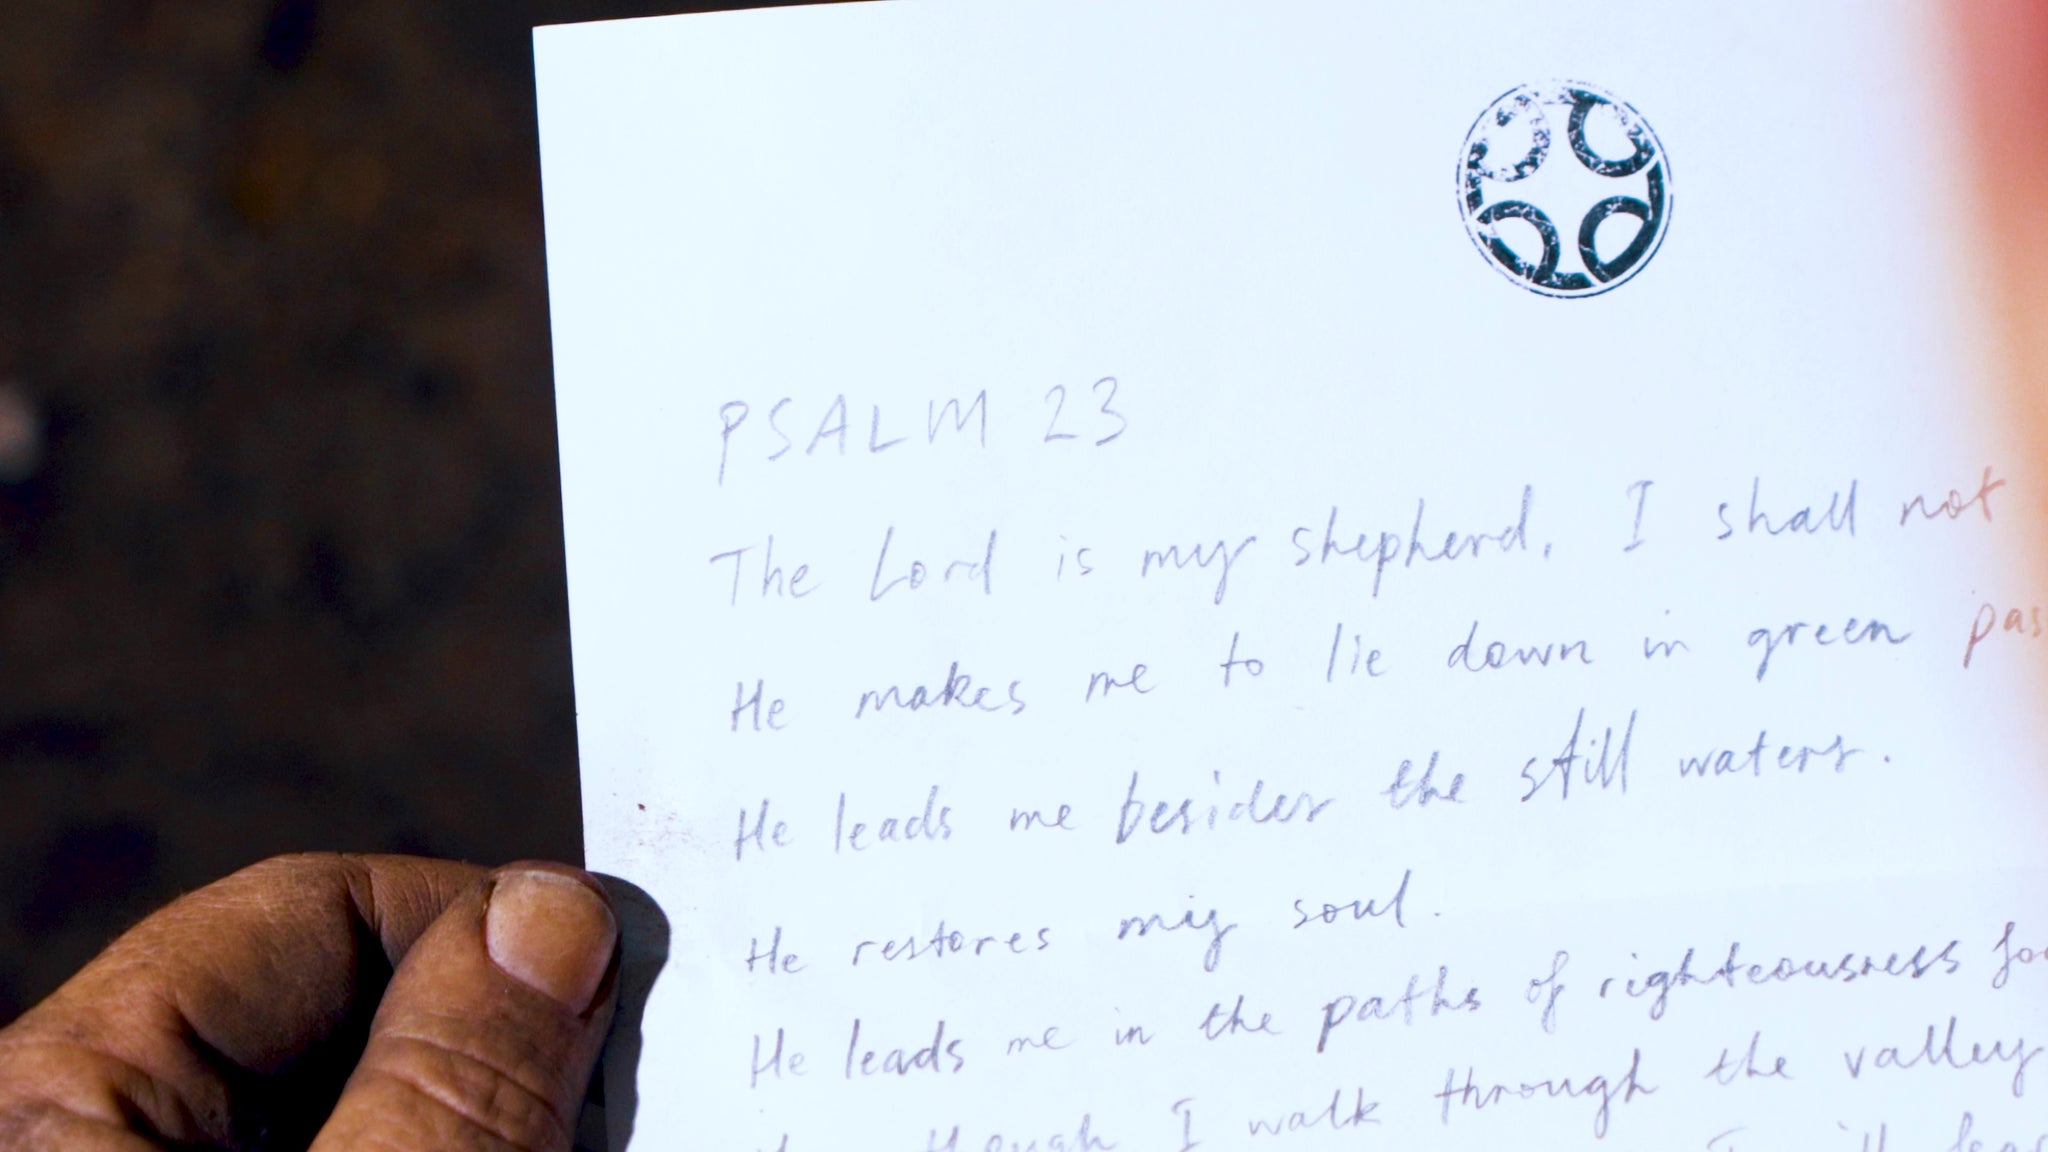 PSALM 23
The Lord is my shepherd, I shall not
He makes me to lie down in green pas
He leads me besides the still waters.
He restores my soul.
He leads me in the paths of righteousness fo
though I walk through the valley
I will fear